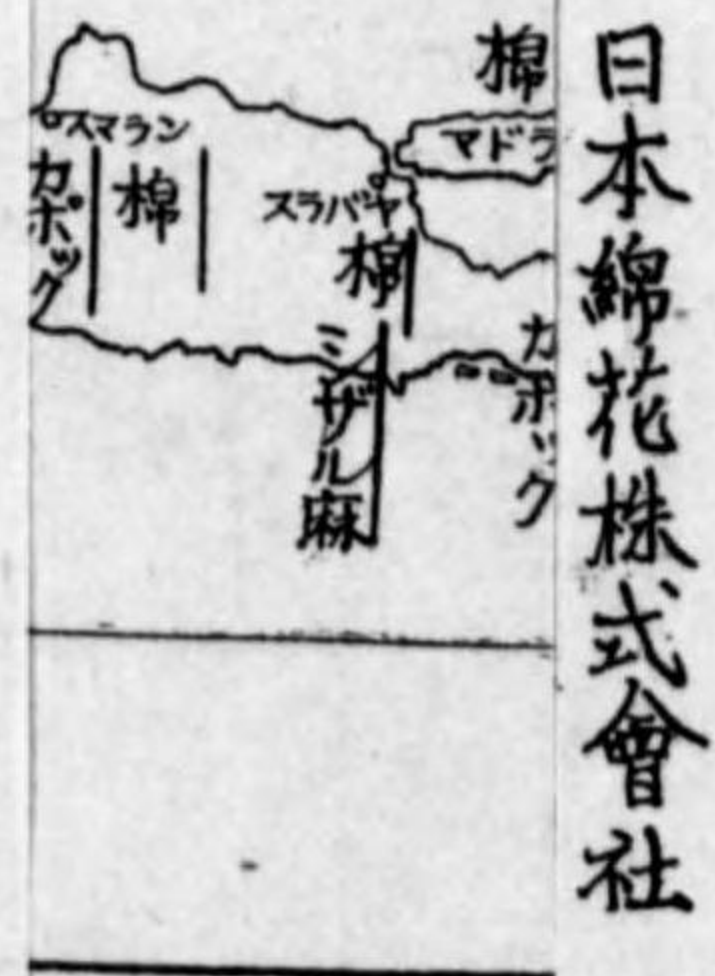 日本綿花株式會社
棉
マドラ
スマラン
カポック
棉
スラバヤ
棉
ミザル麻
カポック